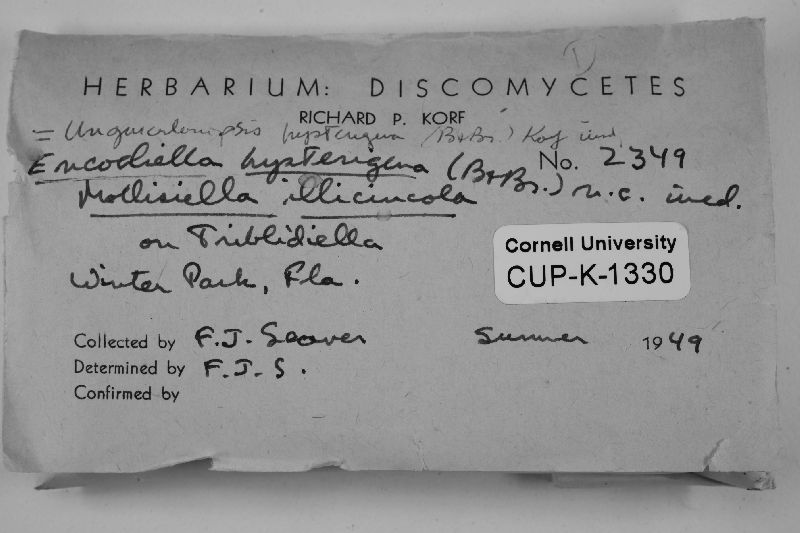 (1)
HERBARIUM: DISCOMYCETES
RICHARD P. KORF
= Unguiculariopsis hysterigena (B+Br.) Korf ined.
Encoeliella hysterigena (B+Br.) n.c. ined.
No. 2349
Mollisiella ilicincola
on Triblidiella
Winter Park, Fla.
Cornell University
CUP-K-1330
Collected by F.J. Seaver Summer 1949
Determined by F.J.S.
Confirmed by